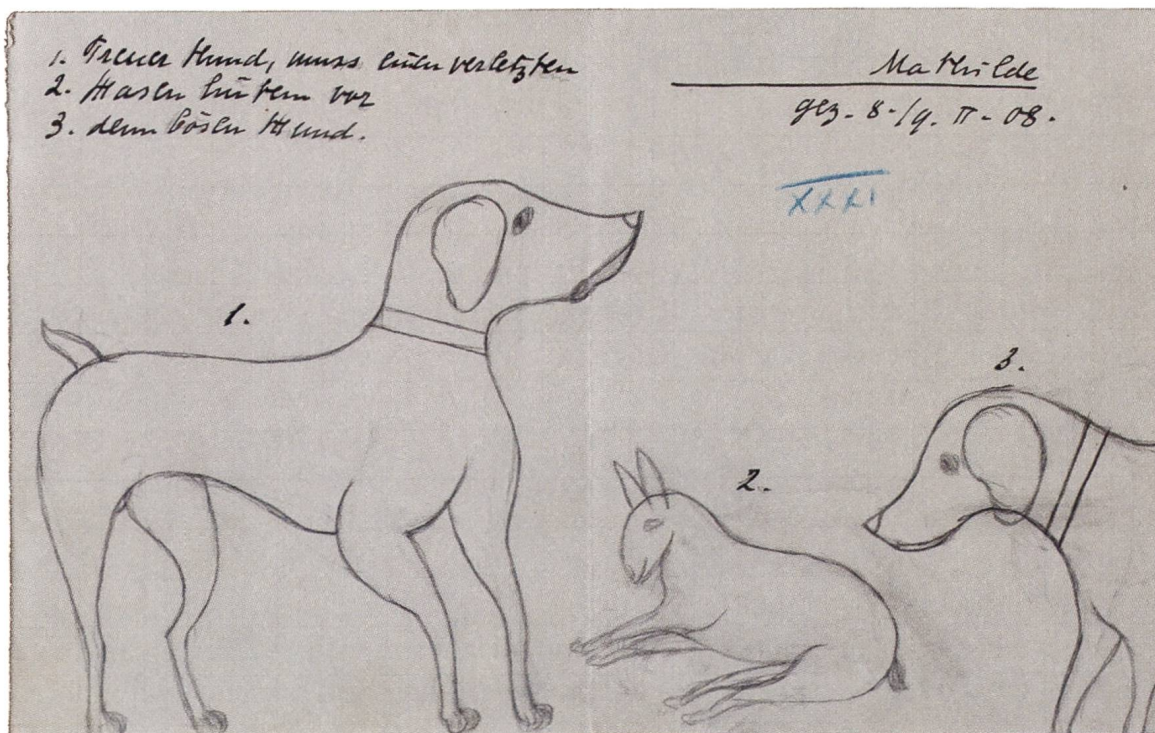 1. Treuer Hund, muss einen verletzten
2. Hasen hüten vor
3. dem bösen Hund.
Mathilde
gez. 8./9. II - 08.
XXXI
1.
3.
2.